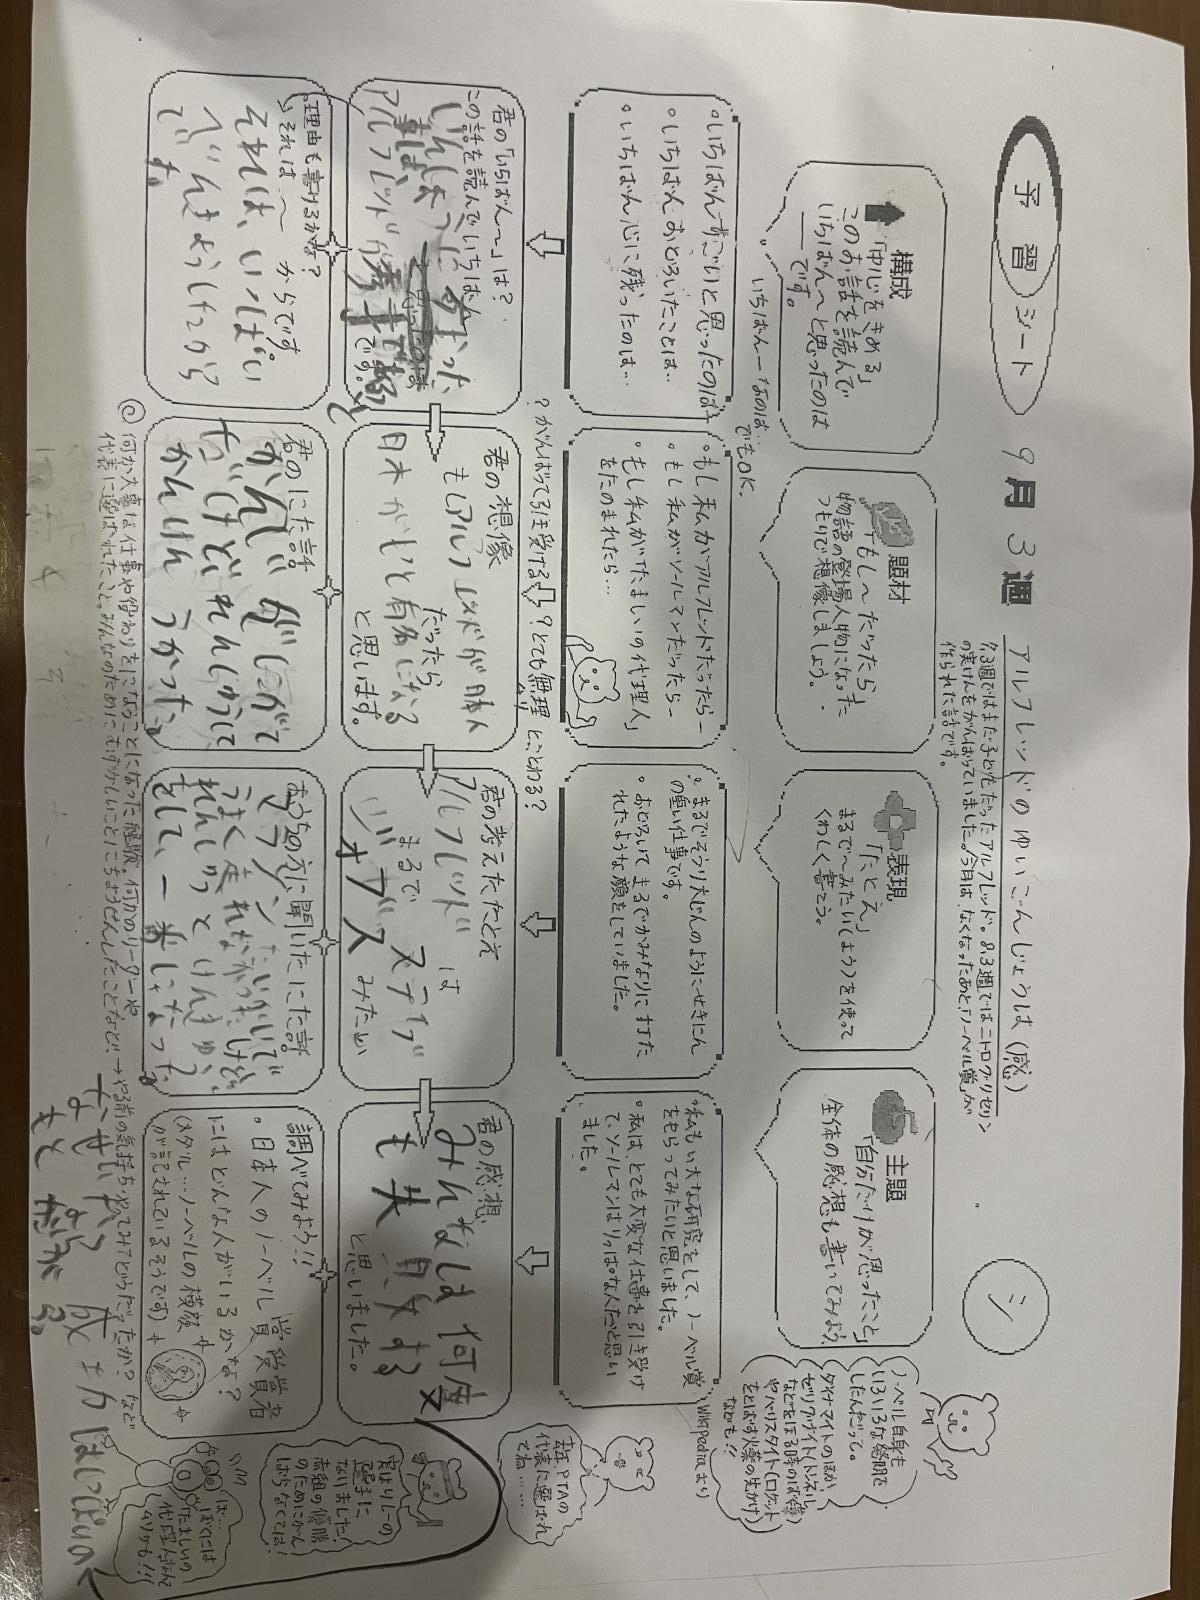 予習シート
9月3週
アルフレッドのゆいごんじょうは(感)
シ
7.3週ではまだ子どもだったアルフレッド。8.3週ではニトログリセリン
の実けんをがんばっていました。今月は、なくなったあと「ノーベル賞」が
作られた話です。
構成
「中心をきめる」
このお話を読んで
いちばん〜と思ったのは
です。
いちばん―なのは…
でもOK.
題材
「もし〜だったら」
物語の登場人物になった
つもりで想像しましょう。
表現
「たとえ」
まるで〜みたい(よう)を使って
くわしく書こう。
主題
「自分だけが思ったこと」
全体の感想も書いてみよう
ノーベル自身も
いろいろな発明を
したんだって。
ダイナマイトのほか
などをほる時のばく薬)
やバリスタイト(ロケット
をとばす火薬の先がけ)
なども!!
Wikipediaより
◦いちばんすごいと思ったのは…
◦いちばんおどろいたことは…
◦いちばん心に残ったのは…
◦もし私がアルフレッドだったら―
◦もし私がソールマンだったら―
◦もし私が「たましいの代理人」
をたのまれたら…
◦まるでそうり大じんのようにせきにん
の重い仕事です。
◦おどろいて、まるでかみなりに打た
れたような顔をしていました。
◦私も、い大な研究をして、ノーベル賞
をもらってみたいと思いました。
◦私は、とても大変な仕事を引き受け
て、ソールマンはりっぱな人だと思い
ました。
?がんばって引き受ける?とても無理
とことわる?
君の「いちばん〜」は?
この話を読んでいちばん
いんしょうにのこった
事は、
アルフレッドが
です。
君の想像
もしアルフレッドが日本人
だったら
日本がもっと有名になる
と思います。
君の考えたたとえ
アルフレッドは
まるで
スティブ
ジョブス
みたい
君の感想
みんなは何度
も失敗する
と思いました。
去年PTAの
代表に選ばれ
てね……
理由も書けるかな?
それは〜からです
それは、いっぱい
べんきょうしたから
です。
君のにた話
かん字がにがて
だけどれんしゅうして
かんけん
うかった。
おうちの方に聞いたにた話
マラソンたいかいで
うまく走れなかったけど、
れんしゅうとけんきゅう
をして、一番になった。
調べてみよう!!
◦日本人のノーベル賞受賞者
にはどんな人がいるかな?
(メダル…ノーベルの横顔
が記されているそうです)
実はリレーの
選手に
なりました!
赤組の優勝
のためにがん
ばらなくては!
ば…
ぼくには
たましいの
代理人なんて
ムリかも!!!
何か大事な仕事や役わりをになうことになった経験。何かのリーダーや
代表に選ばれたこと。みんなのためにむずかしいことにちょうせんしたことなど。→やる前の気持ち、やってみてどうだったか?など
なぜなら成功はしっぱいの
もとだからだ。